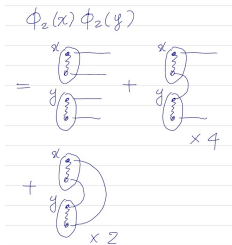 Φ₂(x) Φ₂(y)
x x
= y + y
× 4
x
+ y
× 2